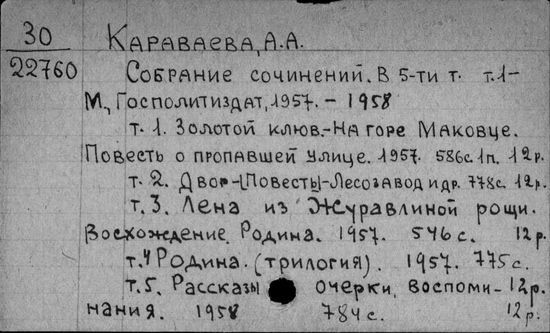 30 Караваева, А.А.
22760 Собрание сочинений. В 5-ти т. т.1-
М., Госполитиздат, 1957. - 1958
т. 1. Золотой клюв.-На горе Маковце.
Повесть о пропавшей улице. 1957. 586с. 1п. 12р.
т. 2. Двор-[Повесть]-Лесозавод и др. 778с. 12р.
т. 3. Лена из Журавлиной рощи.
Восхождение. Родина. 1957. 546 с. 12р.
т.4 Родина. (трилогия). 1957. 775с.
т.5. Рассказы очерки, воспоми- 12р.
нания. 1958 784с. 12р.